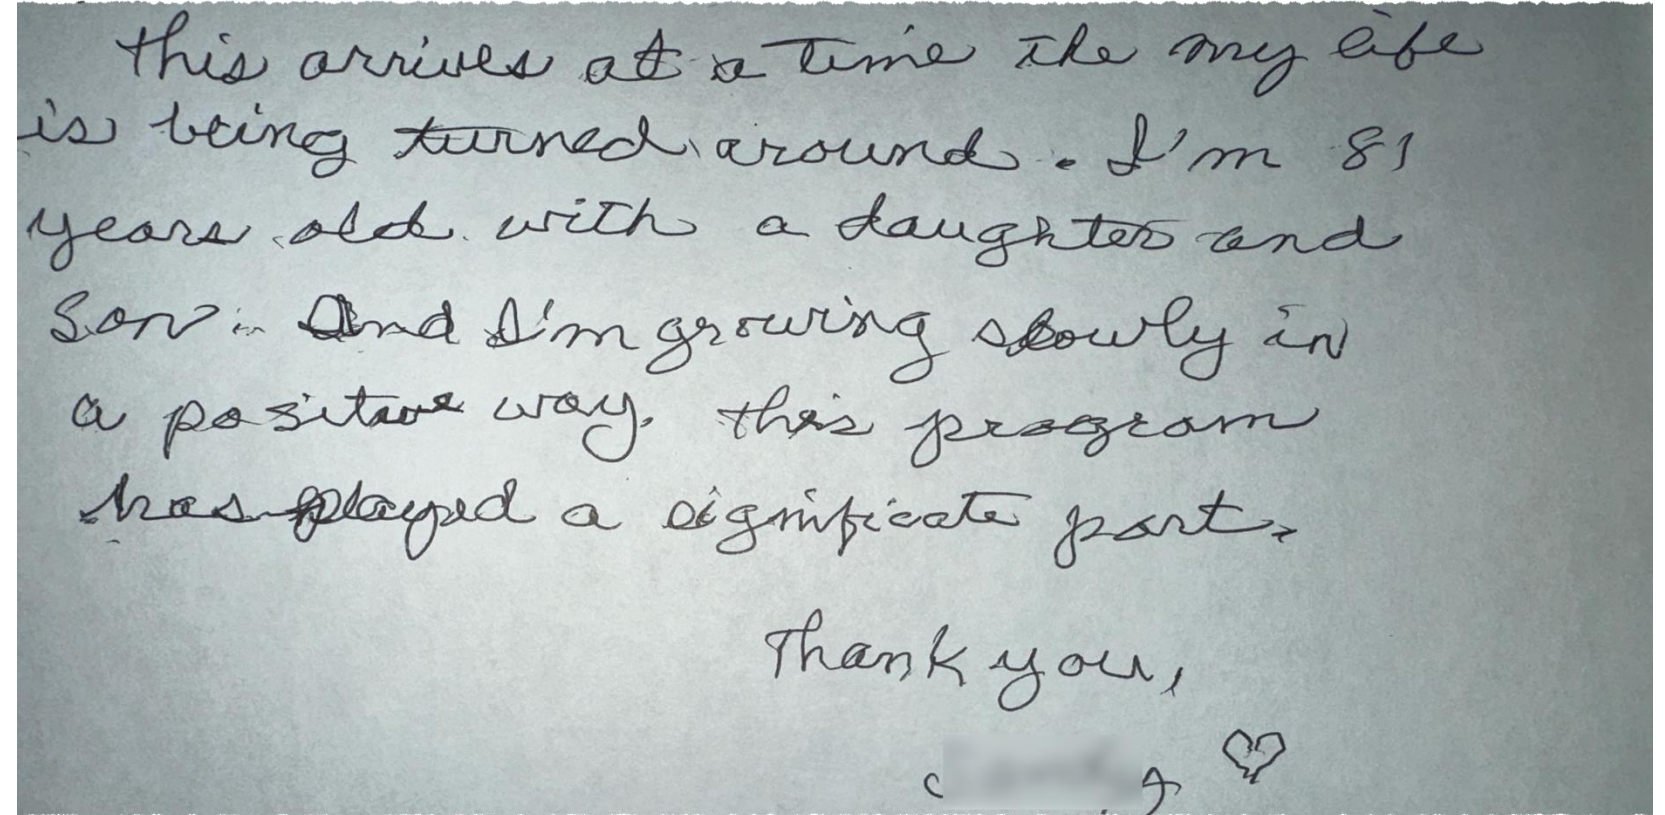 this arrives at a time the my life
is being turned around. I'm 81
years old with a daughter and
son. And I'm growing slowly in
a positive way. this program
has played a significate part.
Thank you,